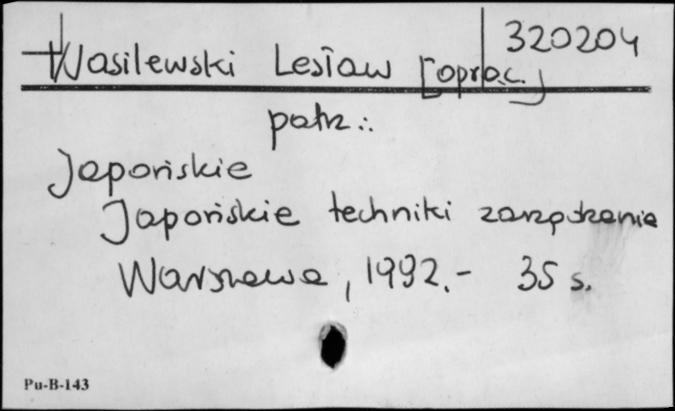 320204
Wasilewski Lesław [oprac.]
patrz.:
Japońskie
Japońskie techniki zarządzania
Warszawa, 1992.- 35 s.
Pu-B-143